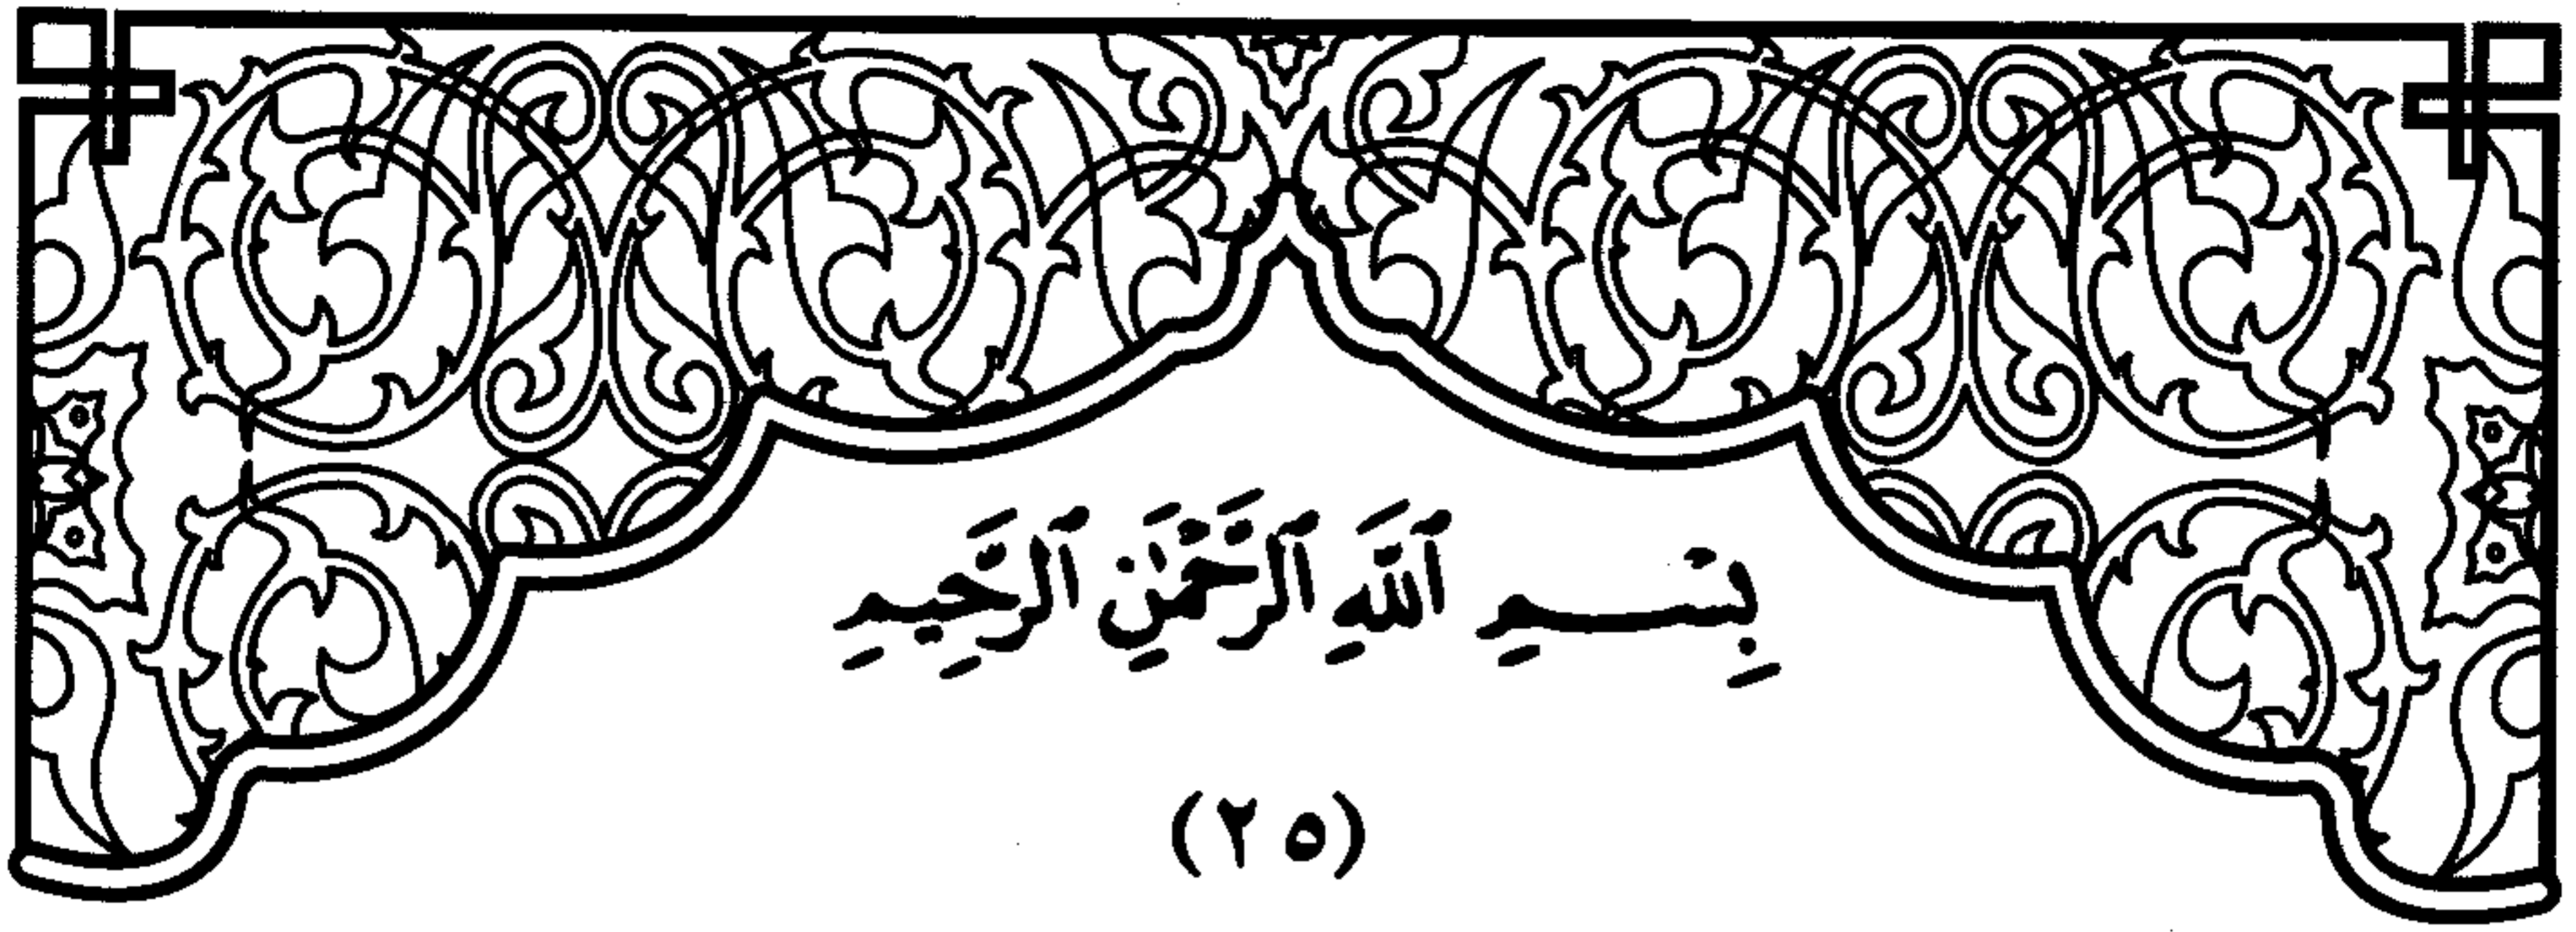 بِسْمِ ٱللَّهِ ٱلرَّحْمَٰنِ ٱلرَّحِيمِ
(٢٥)